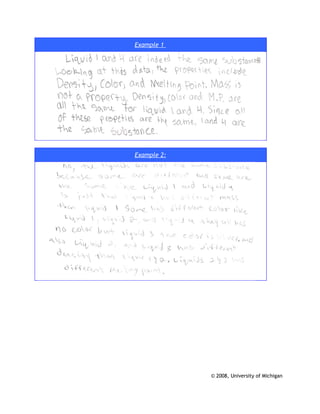 Example 1
Liquid 1 and 4 are indeed the same substance
Looking at this data, the properties include
Density, Color, and Melting Point. Mass is
not a property. Density, color and M.P. are
all the same for liquid 1 and 4. Since all
of these propeties are the same, 1 and 4 are
the same substance.
Example 2:
No, the liquids are not the same
because some are different and some are
the same. Liquid 1 and Liquid 4
is just
than liquid 1 Some has different color like
liquid 1, liquid 2 and liquid 4 they all has
no color but liquid 3 and
also liquid 2, and liquid 3 has different
density than liquid 1 & 4. Liquids 2 & 3 has
different melting point.
© 2008, University of Michigan